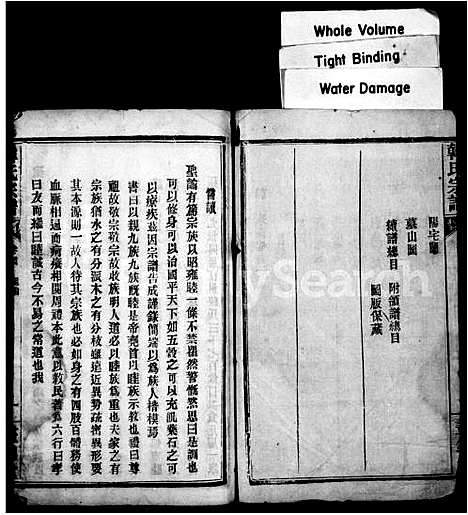 Whole Volume
Tight Binding
Water Damage
陽宅圖
墓山圖
續譜總目 附領譜總目
圖版保藏
聖諭有篤宗族以昭雍睦一條不禁翟然慨然思曰是訓也
可以修身可以治國平天下如五穀之可以充飢藥石之可
以療疾茲因宗譜告成謹錄簡端以為族人楷模焉
書曰以親九族九族既睦是帝堯首以睦族示教也禮曰尊
祖故敬宗敬宗故收族明人道必以睦族為重也夫家之有
宗族猶水之有分派木之有分枝雖遠近異勢疏密異形要
其本源則一故人之待其宗族也必如身之有四肢百體務使
血脈相通而疴癢相關周禮本此意以教民著為六行曰孝
曰友而繼曰睦誠古今不易之常道也我